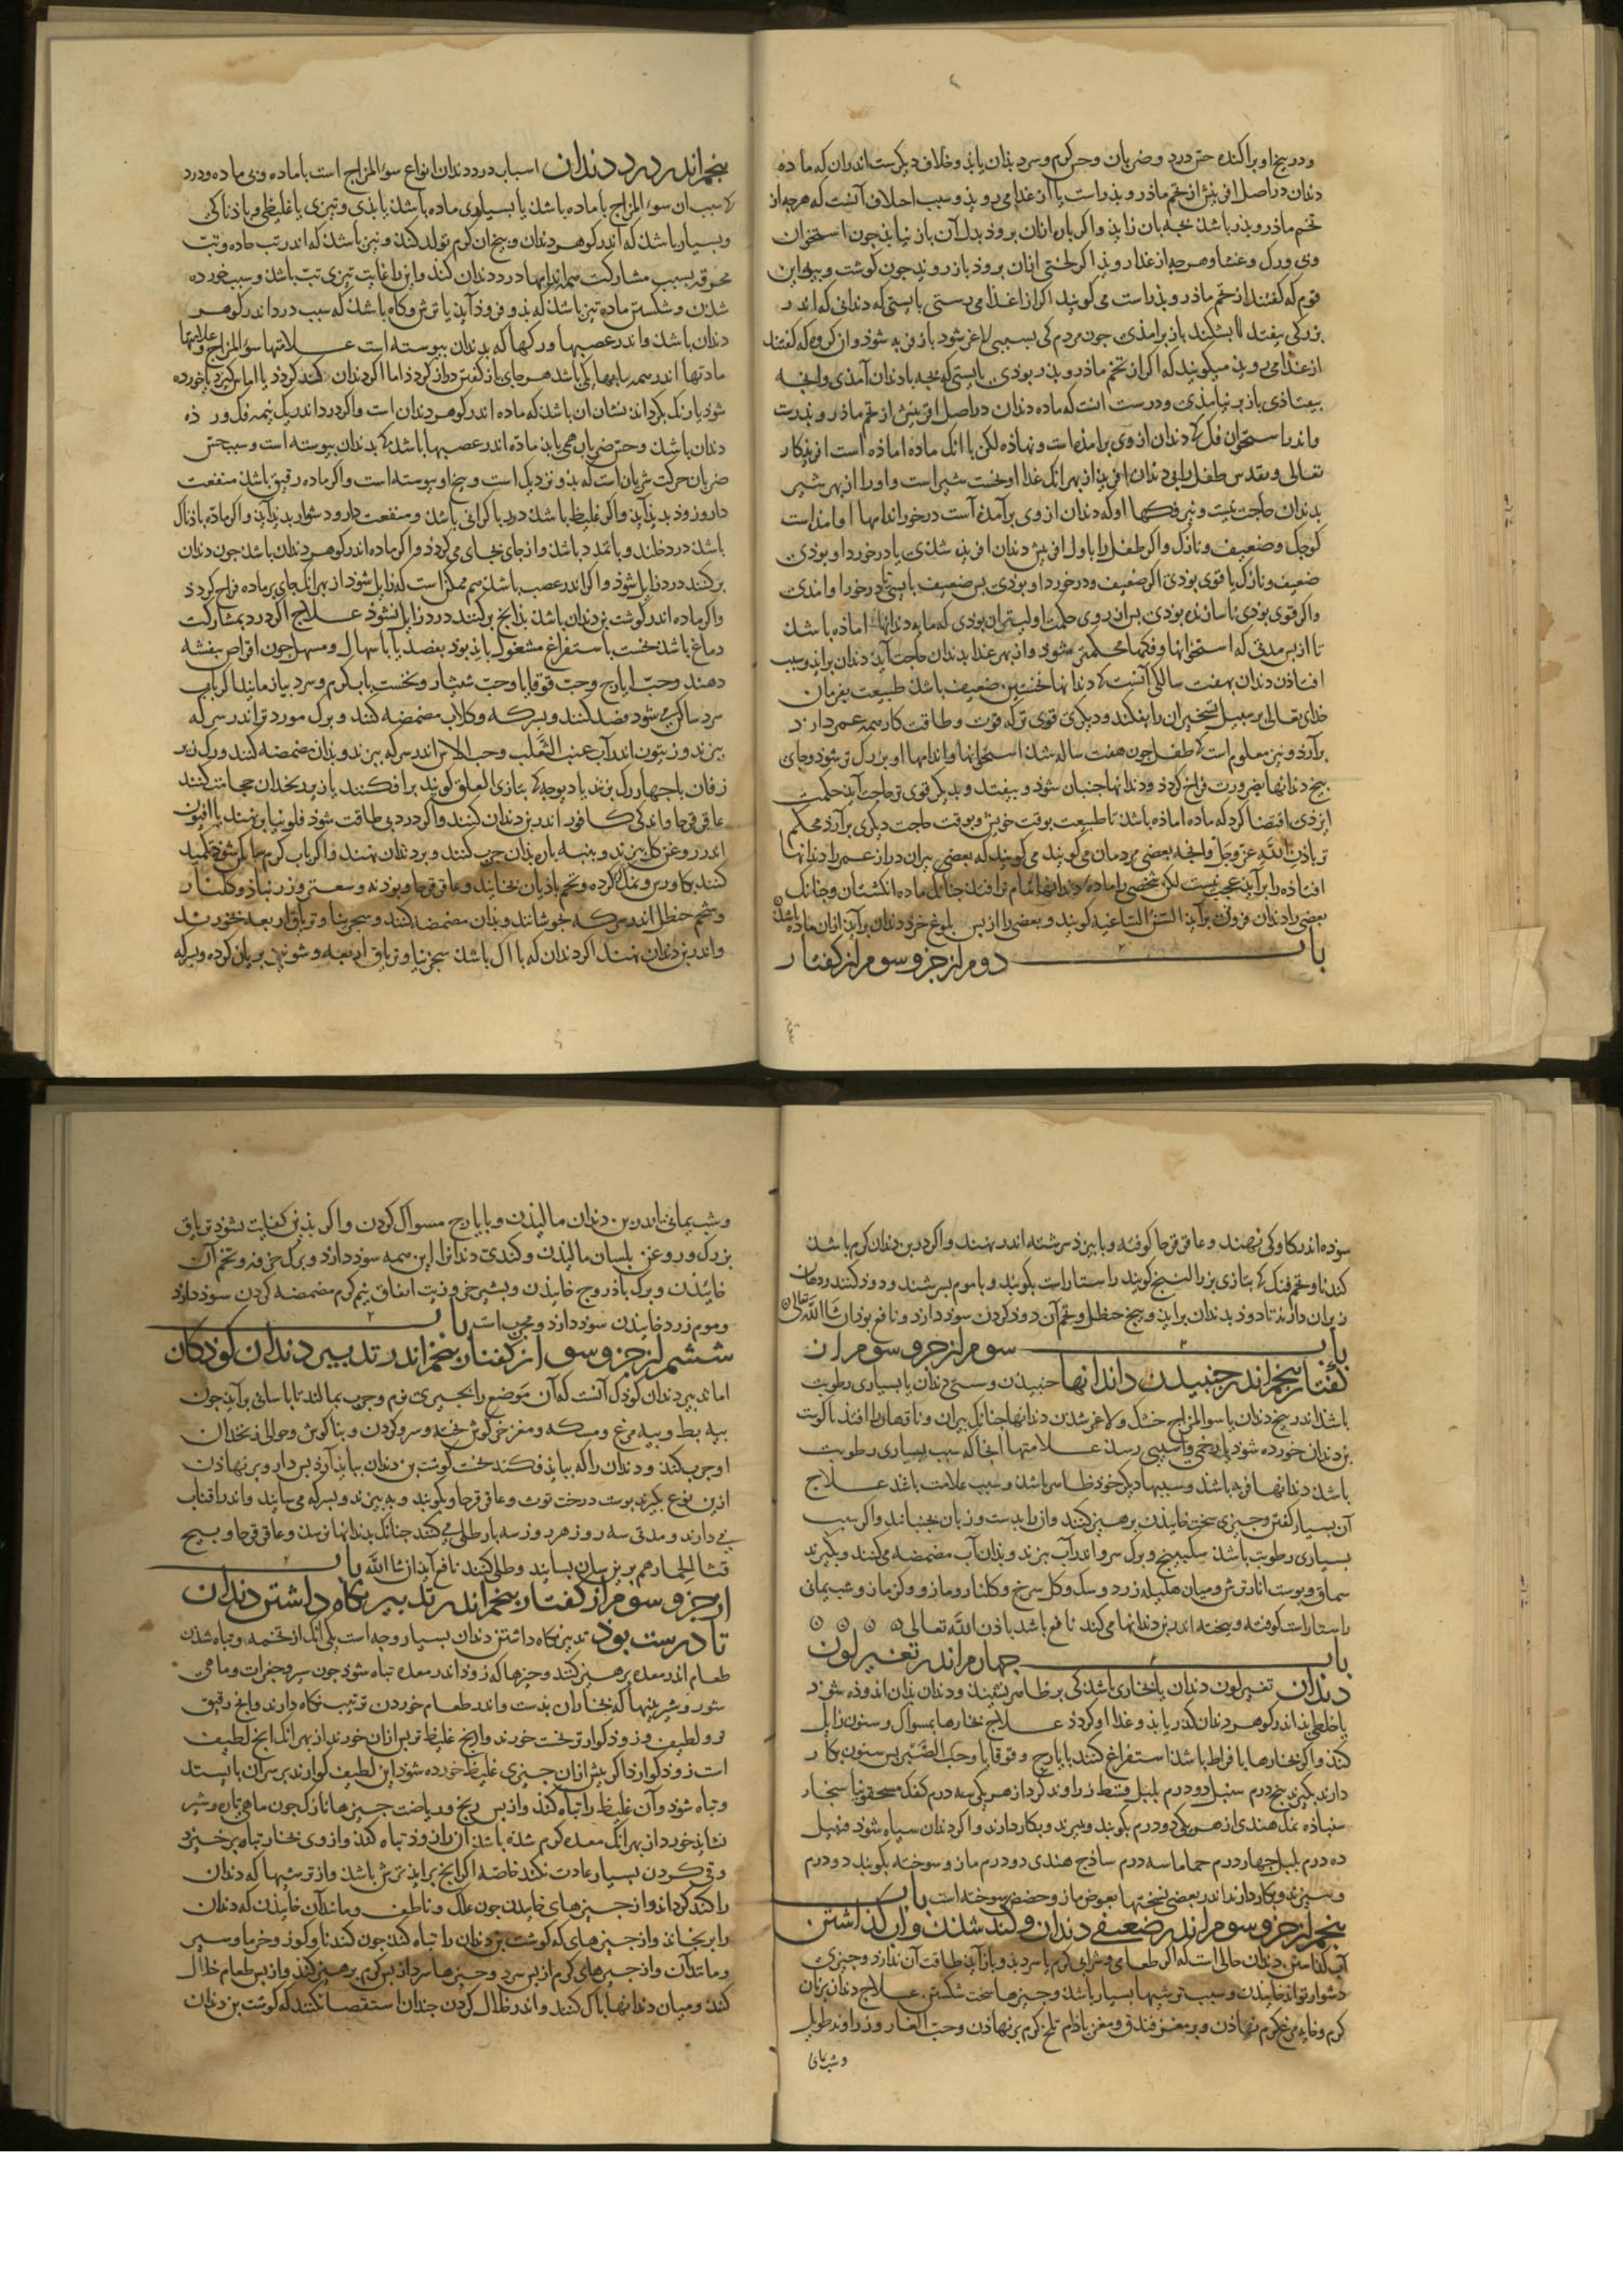 و در بیخ او پراکنده حس درد و ضربان و حس گرم و سرد بذان یابذ و خلاف دیگرست اندران که ماده
دندان در اصل افرینش از تخم ماذر و بذرست یا از غذا می روید و سبب اختلاف آنست که هرچه از
تخم ماذر و بذر باشذ نجه بان زاید و اگر پاره ازان برود بدل آن باز نیاید چون استخوان
و پی و رگ و غشا و هرچه از غذا روید اگر لختی ازان برود باز روید چون گوشت و پیه این
قوم که گفتند از تخم ماذر و بذرست می گویند اگر از غذا می رستی بایستی که دندانی که اندر
بزرگی بیفتد یا بشکند باز برامذی چون مردم کی بسببی لاغر شود باز فربه شوذ و ان گروه که گفتند
از غذا می روید میگویند که اگر از تخم ماذر و بذر بوذی بایستی که بچه با دندان آمذی و انچه
بیفتاذی باز بر نیامذی و درست انست که ماده دندان در اصل افرینش از تخم ماذر و بذرست
و اندر استخوان فک کی دندان از وی برامذه است و نهاذه لکن با انک ماده اماذه است افریذکار
تعالی و تقدس طفل را بی دندان افرید از بهر انک غذا او نخست شیر است و او را از بهر شیر
بدندان حاجت نیست و نیز فکها او که دندان از وی برآمذه است در خور اندامها او امذست
کوچک و ضعیف و نازک و اگر طفل را باول افرینش دندان افریذه شذی یا در خورد او بوذی
ضعیف و نازک یا قوی بوذی اگر ضعیف و در خورد او بوذی بس ضعیف بایستی تا در خورد او امذی
و اگر قوی بوذی ناسازنده بوذی بس از روی حکمت اولیتر ان بوذی که مایه دندانها اماذه باشذ
تا از پس مدتی که استخوانها و فکها محکمتر شود و از بهر غذا بدندان حاجت آید دندان برایذ و سبب
افتاذن دندان بهفت سالگی آنست کی دندانها نخستین ضعیف باشذ طبیعت بفرمان
خدای تعالی بر سبیل تسخیر ان را بیفکند و دیگری قوی تر که قوت و طاقت کار همه عمر دارذ
برآرذ و نیز معلوم است کی طفل چون هفت ساله شذ استخوانها و اندامها او بزرگ تر شوذ و جای
بیخ دندانها بضرورت فراخ گردذ و دندانها جنبان شوذ و بیفتد و بدیگر قوی تر حاجت آید حکمت
ایزدی اقتضا کرد که ماده اماذه باشذ تا طبیعت بوقت خویش و بوقت حاجت دیگری برآرذ محکم
تر باذن الله عز و جل و انچه بعضی مردمان می گویند که بعضی پیران دراز عمر را دندانها
افتاذه را برآید عجب نیست لکن شخصی را ماده دندانها تمام تر افتد چنانک ماده انگشتان و چنانک
بعضی را دندان فزونی برآید السن الشاغیه گویند و بعضی را از پس بلوغ خرد دندان برآید ازان ماده باشذ
باب دوم از جزو سوم از گفتار
پنجم اندر درد دندان اسباب درد دندان انواع سوء المزاج است با ماده و بی ماده و درد
کی سبب ان سوء المزاج با ماده باشذ یا بسیاری ماده باشذ یا بذی و تیزی یا غلیظی و باذناکی
و بسیار باشذ که اندر گوهر دندان و بیخ ان کرم تولد کنذ و نیز باشذ که اندر تب حاده و تب
محرقه بسبب مشارکت همه اندامها درد دندان کند و این را غایت تیزی تب باشذ و سبب خورده
شذن و شکستن ماده تیز باشذ که بذو فروذ آید یا ترش و گاه باشذ که سبب درد اندر گوهر
دندان باشذ و اندر عصبها و رگها که بدندان پیوسته است علامتها سوء المزاج و علامتها
مادتها اندر همه بابها یکی باشذ هر جای باز گفتن دراز گردذ اما اگر دندان کند گردذ یا اماس گیرذ یا خورده
شوذ یا رنگ بگرداند نشان ان باشذ که ماده اندر گوهر دندان است و اگر درد اندر یک نیمه فک ور ذه
دندان باشذ و حس ضربان همی یابذ ماده اندر عصبها باشذ کی بدندان پیوسته است و سبب حس
ضربان حرکت شریان است که بذو نزدیک است و بیخ او پیوسته است و اگر ماده رقیق باشذ منفعت
دارو زوذ بدید آید و اگر غلیظ باشذ درد با گرانی باشذ و منفعت دارو دشوار بدید آید و اگر ماده باذناک
باشذ درد خلنده و با تمدد باشذ و از جای بجای می گردذ و اگر ماده اندر گوهر دندان باشذ چون دندان
برکنند درد زایل شوذ و اگر اندر عصب باشذ هم ممکن است که زایل شوذ از بهر انک جای بر ماده فراخ گردذ
و اگر ماده اندر گوشت بن دندان باشذ بذانچ برکنند درد زایل نشوذ علاج اگر درد بمشارکت
دماغ باشذ نخست باستفراغ مشغول بایذ بوذ بفصد یا باسهال و مسهل چون اقراص بنفشه
دهند و حب ایارج و حب قوقایا و حب شبیار و نخست باب گرم و سرد بیازمایند اگر باب
سرد ساکن می شود فصد کنند و بسرکه و گلاب مضمضه کنند و برگ مورد تر اندر سرکه
بپزند و زیتون اندر آب عنب الثعلب و حب الاس اندر سرکه بپزند و بذان مضمضه کنند و رگ زیر
زفان یا چهار رگ بزنند یا دیوچه کی بتازی العلق گویند برافکنند یا زیر زنخدان حجامت کنند
عاقرقرحا و اندکی کافور اندر بن دندان کنند و اگر درد بی طاقت شوذ فلونیا بر نهند یا افیون
اندر روغن گل بپزند و پنبه باره بذان چرب کنند و بر دندان نهند و اگر باب گرم ساکن شوذ تکمید
کنند بگاورس و نمک گرم کرده و تخم باذیان بخایند و عاقرقرحا و پودنه و سعتر و زرنباذ و گلنار
و شحم حنظل اندر سرکه بجوشانند و بذان مضمضه کنند و سجزینا و تریاق اربعه بخورند
و اندر بن دندان نهند اگر دندان که با اکال باشذ سجزینا و تریاق اربعه و شونیز بریان کرده و بسرکه
سوده اندر کاواکی نهند و عاقرقرحا کوفته و با بیرزذ سرشته اندر نهند و اگر در بن دندان کرم باشذ
گندنا و تخم فنک کی بتازی بزر البنج گویند راستاراست بکوبند و با موم بسرشند و دود کنند و دهان
زبران دارند تا دود بدندان برایذ و بیخ حنظل و تخم آن دود کردن سود دارذ و نافع بوذ ان شاالله تعالی
باب سوم از جزو سوم از ان
گفتار پنجم اندر جنبیدن داندانها جنبیذن و سستی دندان یا بسیاری رطوبت
باشذ اندر بیخ دندان یا سو المزاج خشک و لاغر شذن دندانها چنانک پیران و ناقهان را افتذ یا گوشت
بن دندان خورده شوذ یا زخمی و اسیبی رسذ علامتها انجا که سبب بسیاری رطوبت
باشذ دندانها فربه باشذ و سببها دیگر خود ظاهر باشذ و سبب علامت باشد علاج
آن بسیار گفتن و چیزی سخت خاییذن پرهیز کنند و از را بدست و زبان بجنبانند و اگر سبب
بسیاری رطوبت باشذ سکبینج و برگ سرو اندر آب بپزند و بذان آب مضمضه می کنند و بگیرند
سماق و پوست انار ترش و میان هلیله زرد و سک و گل سرخ و گلنار و مازو و کزمازو و شب یمانی
راستاراست کوفته و بیخته اندر بن دندانها می کند نافع باشد باذن الله تعالی
باب چهارم اندر تغییر لون
دندان تغییر لون دندان یا بخاری باشذ کی بر ظاهر نشیند و دندان بذان اندوده شوذ
یا خلطی بذ اندر گوهر دندان گذر یابذ و غذا او گردذ علاج بخارها بمسواک و سنون زایل
کنذ و اگر بخارها بافراط باشذ استفراغ کنند بایارج و قوقایا و حب الصبر پس سنون بکار
دارند بگیرند پنج درم سنبل دو درم پلپل قسط زراوند گرد از هر یکی سه درم کفک مسحقونیا سبخار
سنباذه نمک هندی از هر یکی دو درم بکوبند و بپزند و بکار دارند و اگر دندان سیاه شوذ فنبیل
ده درم پلپل چهار درم حماما سه درم ساذج هندی دو درم مازو سوخته بکوبند دو درم
و بپزند و بکار دارند اندر بعضی نسختها بعوض مازو حضض سوخته است باب
پنجم از جزو سوم اندر ضعیفی دندان و کند شذن و از گذاشتن
آب گذاشتن دندان حالی است که اگر طعامی و شرابی گرم یا سرد بذو باز آید طاقت آن ندارد و چیزی
دشوار تواند خاییدن و سبب ترشیها بسیار باشذ و چیزها سخت شکستن علاج دندان بر نان
گرم و خایه مرغ گرم نهاذن و بر مغز فندق و مغز باذام تلخ گرم بر نهاذن و حب الغار و زراوند طویل
و شب یمانی
و شب یمانی اندر بن دندان مالیذن و با ایارج مسواک کردن و اگر بذین کفایت نشوذ تریاق
بزرگ و روغن بلسان مالیذن و کندی دندان را این همه سوذ دارذ و برگ خرفه و تخم آن
خاییذن و برگ باذروج خاییذن و بشیر خر و زیت انفاق نیم گرم مضمضه کردن سوذ دارذ
و موم زرد خاییذن سوذ دارد و مجرب است باب
ششم از جزو سو از گفتار پنجم اندر تدبیر دندان کوذکان
اما تدبیر دندان کوذک آنست که آن موضع را بچیزی نرم و چرب بمالند تا باسانی برآیذ چون
پیه بط و پیه مرغ و مسکه و مغز خرگوش پخته و سر و گردن و بناگوش و حوالی زنخدان
او چرب کنند و دندان را که بباید فکند نخست گوشت بن دندان بباید آزرد پس دارو بر نهاذن
ازین نوع بگیرند پوست درخت توث و عاقرقرحا و بکوبند و ببیزند و بسرکه می سایند و اندر افتاب
می دارند و مدتی سه روز هر روز سه بار طلی می کنند چنانک بدندانها نرسذ و عاقرقرحا و بیخ
قثا الحمار هم برین سان بسایند و طلی کنند نافع آید ان شا الله باب
از جزو سوم از گفتار پنجم اندر تدبیر نگاه داشتن دندان
تا درست بوذ تدبیر نگاه داشتن دندان بسیار وجه است یکی انک از تخمه و تباه شذن
طعام اندر معده پرهیز کنند و چیزها که زوذ اندر معده تباه شوذ چون شیر و جغرات و ماهی
شور و شیرینیها که بخار ان بذست و اندر طعام خوردن ترتیب نگاه دارند و انچ رقیق
تر و لطیف و زوذ گوار تر نخست خورند و انچ غلیظ تر پس ازان خورند از بهر انک انچ لطیف
است زوذ گوارذ اگر پیش ازان چیزی غلیظ خورده شوذ این لطیف گوارنده بر سر ان بایستد
و تباه شوذ و آن غلیظ را تباه کنذ و از پس رنج و ریاضت چیزها نازک چون ماهی تازه و شیر
نشایذ خورد از بهر انک معده گرم شذه باشذ ان را زوذ تباه کنذ و از وی بخار تباه برخیزذ
و قی کردن بسیار عادت نکند خاصه اگر انچ برایذ ترش باشذ و از ترشیها که دندان
را کند گرداند و از چیزهای خاییدن چون علک و ناطف و مانند آن خاییذن که دندان
را برنجاند و از چیزهای که گوشت بن دندان را تباه کنذ چون گندنا و گوز و خرما و سیر
و مانند آن و از چیزهای گرم از پس سرد و چیزها سرد از پس گرم پرهیز کنذ و از پس طعام خلال
کند و میان دندانها پاک کنند و اندر خلال کردن چندان استقصا نکنند که گوشت بن دندان